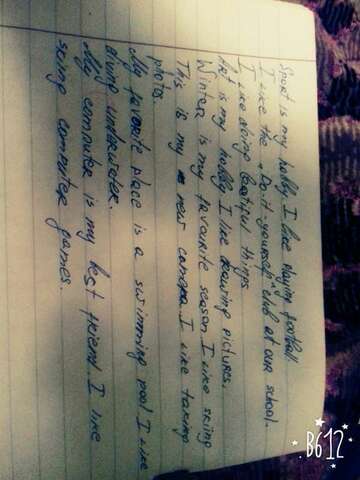 Sport is my hobby. I like playing football.
I like the „Do it yourself" club at our school.
I like doing beatiful things.
Art is my hobby I like drawing pictures.
Winter is my favourite season I like skiing
This is my new camera I like taking
photos.
My favorite place is a swimming pool I like
diving underwater.
My computer is my best friend I like
skiing computer games.
B612